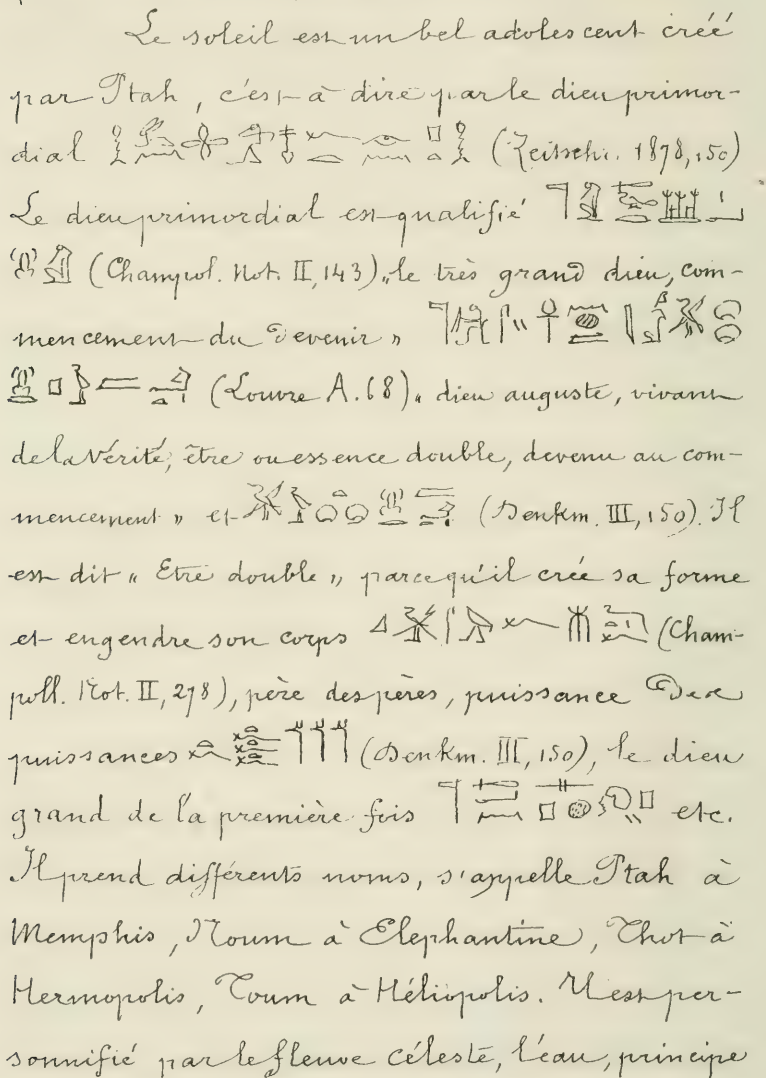 Le soleil est un bel adolescent créé
par Ptah, c'est à dire par le dieu primor-
dial (Zeitschr. 1878, 150)
Le dieu primordial est qualifié
(Champol. Not. II, 143) „le très grand dieu, com-
mencement du devenir „
(Louvre A. 68) „ dieu auguste, vivant
de la Vérité, être ou essence double, devenu au com-
mencement „ et (Denkm. III, 150). Il
est dit „ Etre double „ parcequ'il crée sa forme
et engendre son corps (Cham-
poll. Not. II, 278), père des pères, puissance des
puissances (Denkm. III, 150), le dieu
grand de la première fois etc.
Il prend différents noms, s'appelle Ptah à
Memphis, Noum à Elephantine, Thot à
Hermopolis, Toum à Héliopolis. Il est per-
sonnifié par le fleuve céleste, l'eau, principe